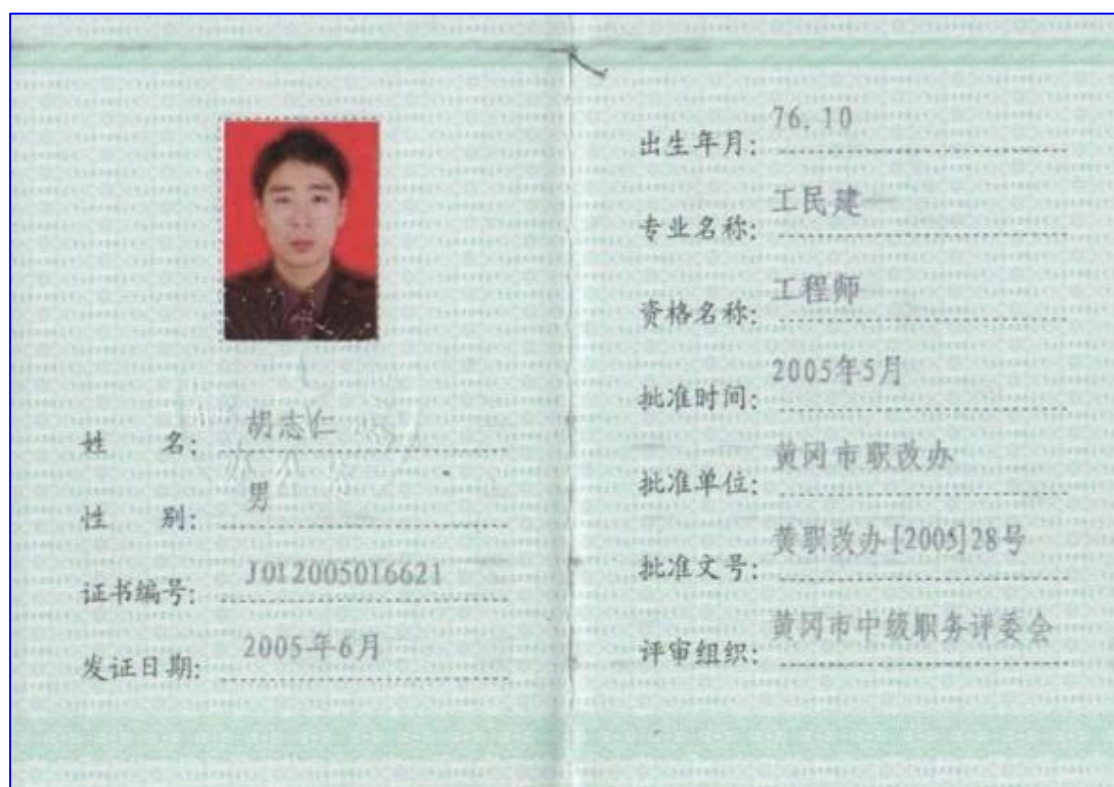 姓 名: 胡志仁
性 别: 男
证书编号: J012005016621
发证日期: 2005年6月
出生年月: 76.10
专业名称: 工民建
资格名称: 工程师
批准时间: 2005年5月
批准单位: 黄冈市职改办
批准文号: 黄职改办[2005]28号
评审组织: 黄冈市中级职务评委会